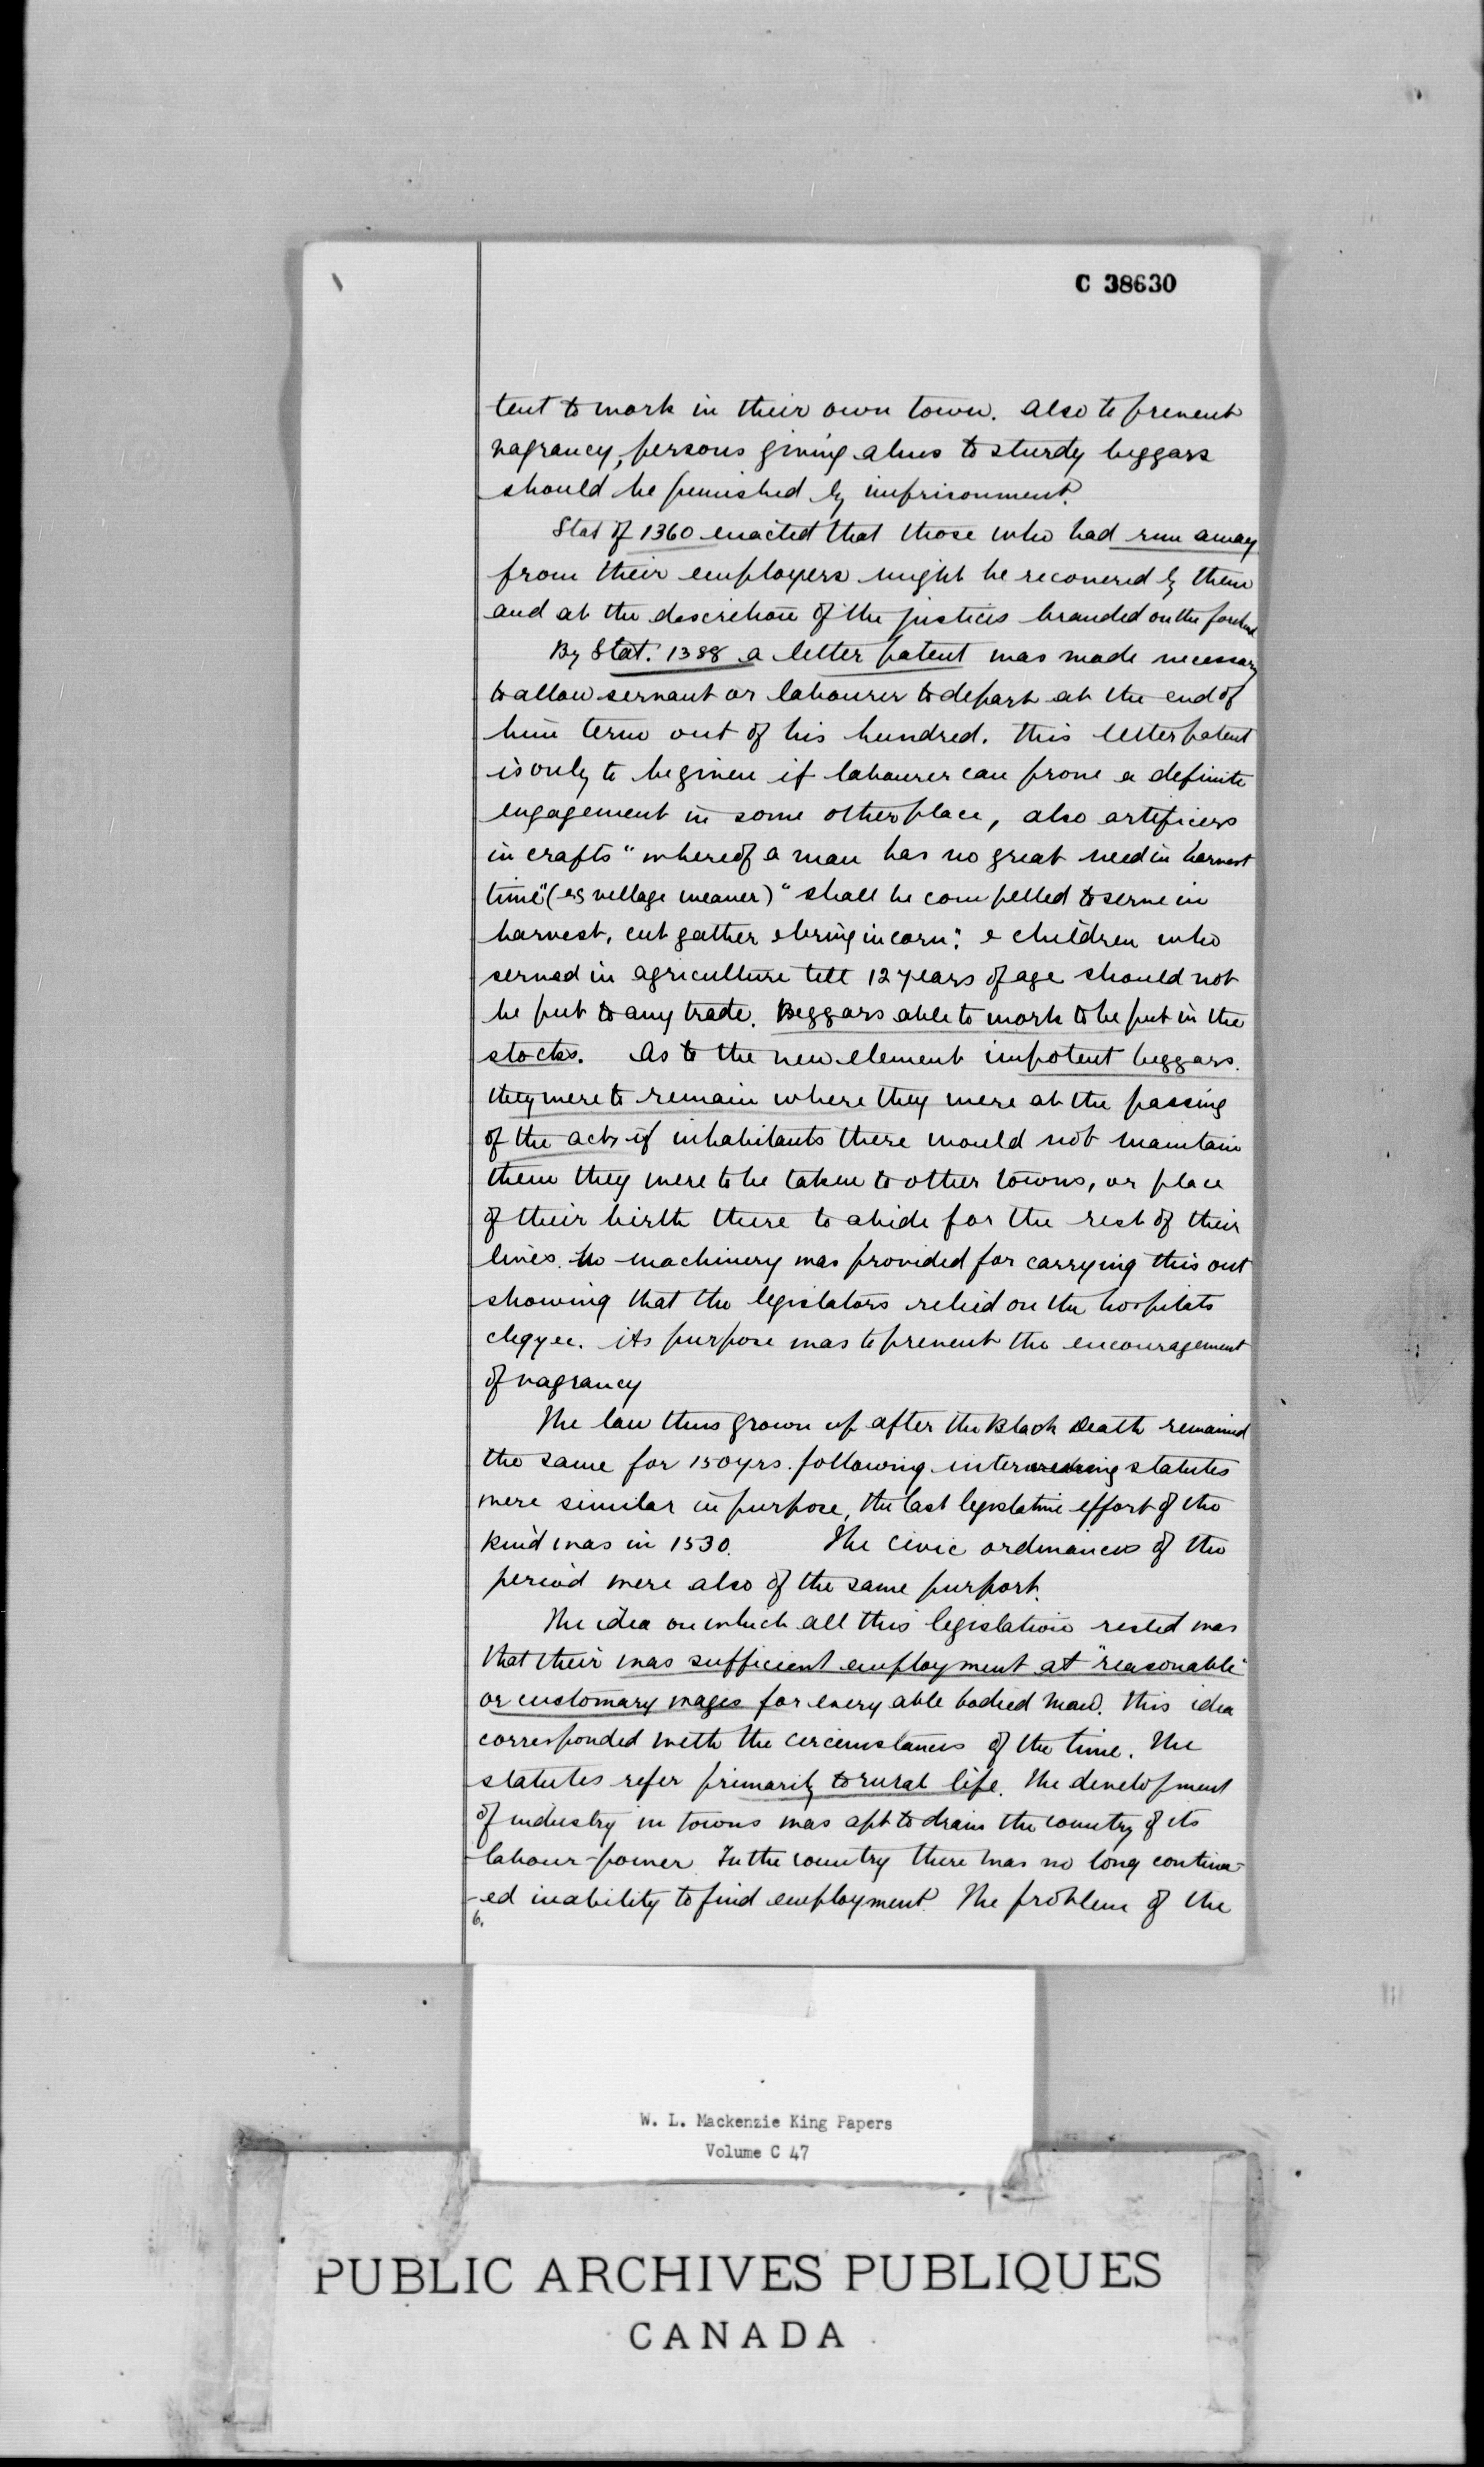 C 38630
tent to work in their own town. Also to prevent
vagrancy, persons giving alms to sturdy beggars
should be punished by imprisonment.
Stat of 1360 enacted that those who had run away
from their employers might be recovered by them
and at the descretion of the justices branded on the forehead
By Stat. 1388 a letter patent was made necessary
to allow servant or labourer to depart at the end of
him term out of his hundred. This letter patent
is only to be given if labourer can prove a definite
engagement in some other place, also artificers
in crafts "whereof a man has no great need in harvest
time" (eg village weaver) "shall be compelled to serve in
harvest, cut gather & bring in corn": & children who
served in agriculture till 12 years of age should not
be put to any trade. Beggars able to work to be put in the
stocks. As to the new element impotent beggars.
they were to remain where they were at the passing
of the act, if inhabitants there would not maintain
them they were to be taken to other towns, or place
of their birth there to abide for the rest of their
lives. No machinery was provided for carrying this out
showing that the legislators relied on the hospitals
clegy &c. its purpose was to prevent the encouragement
of vagrancy
The law thus grown up after the Black Death remained
the same for 150 yrs. following. statutes
were similar in purpose, the last legislative effort of the
kind was in 1530. The civic ordinances of the
period were also of the same purport.
The idea on which all this legislation rested was
that their was sufficient employment at "reasonable"
or customary wages for every able bodied man. This idea
corresponded with the circumstances of the time. The
statutes refer primarily to rural life. The development
of industry in towns was apt to drain the country of its
labour-power. In the country there was no long continu-
-ed inability to find employment. The problem of the
6.
W. L. Mackenzie King Papers
Volume C 47
PUBLIC ARCHIVES PUBLIQUES
CANADA